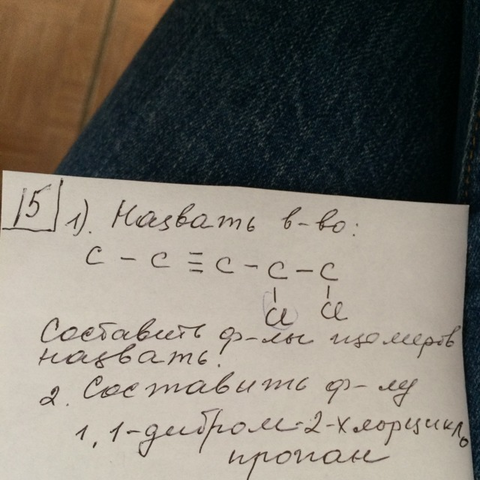 15 1). Назвать в-во:
C - C ≡ C - C - C
Cl Cl
Составить ф-лы изомеров
назвать.
2. Составить ф-лу
1,1-дибром-2-хлорцикло
пропан